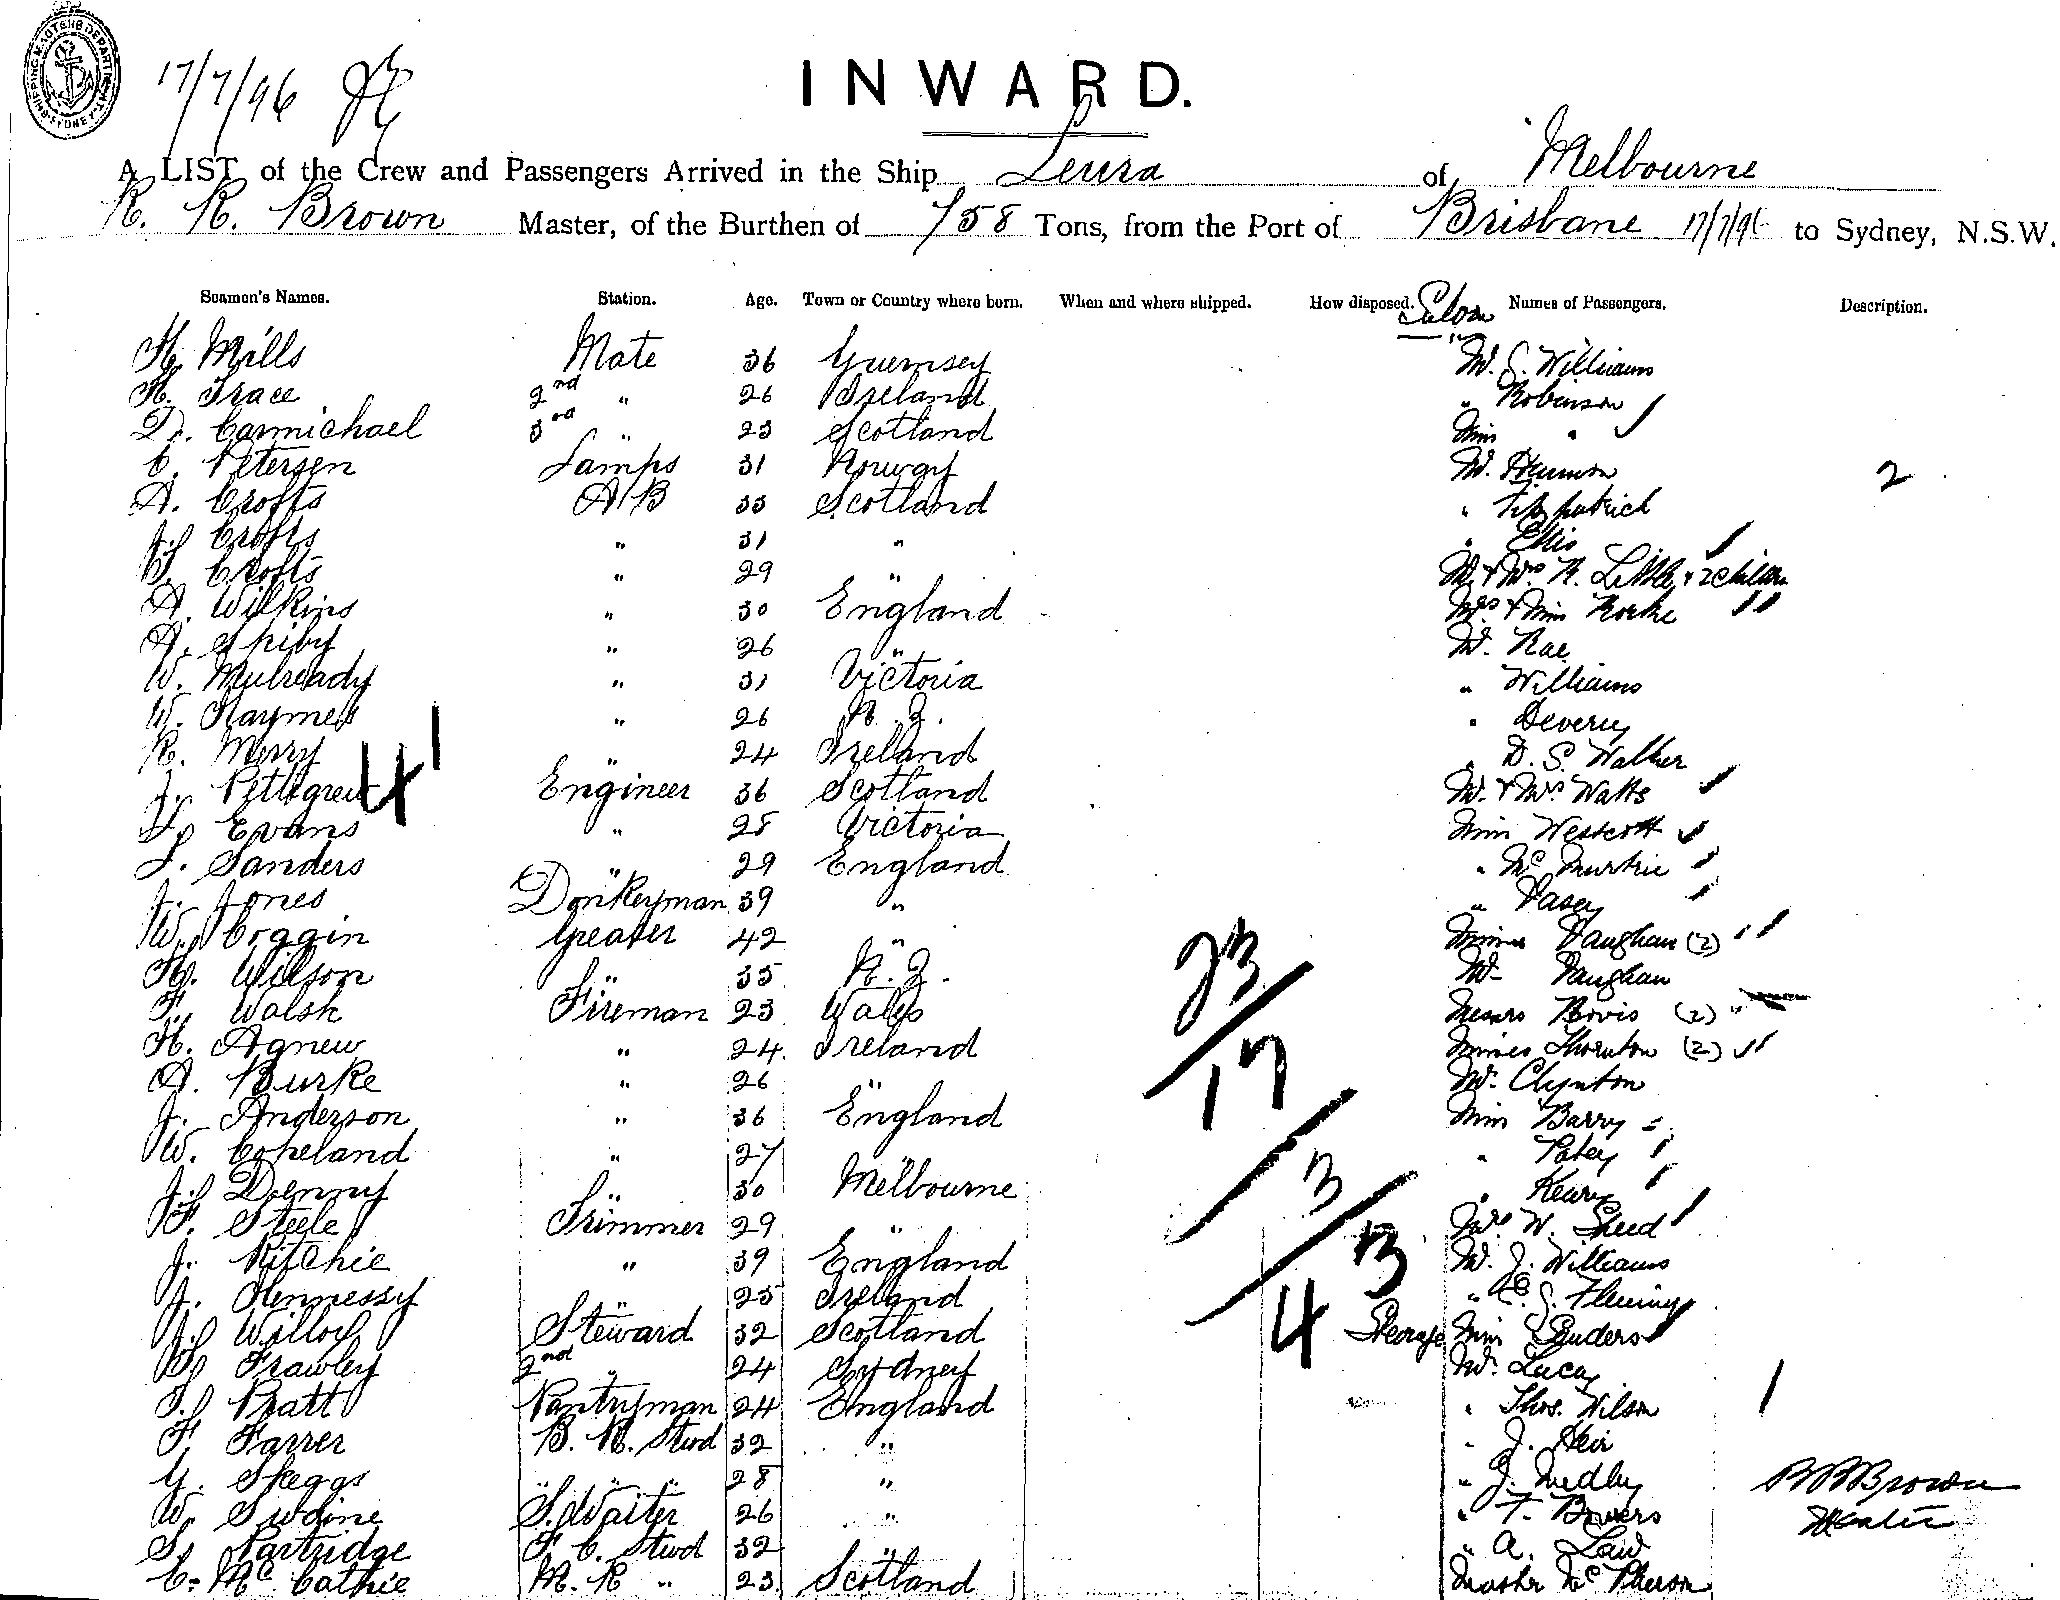 SHIPPING MASTERS DEPARTMENT SYDNEY
17/7/96
INWARD.
A LIST of the Crew and Passengers Arrived in the Ship Leura of Melbourne
R. R. Brown Master, of the Burthen of 758 Tons, from the Port of Brisbane 17/7/96 to Sydney, N.S.W.
Seamen's Names. Station. Age. Town or Country where born. When and where shipped. How disposed. Names of Passengers. Description.
Saloon
H. Mills Mate 36 Guernsey Mr. S. Williams
H. Trace 2nd " 26 Ireland " Robinson
D. Carmichael 3rd " 23 Scotland Miss "
C. Petersen Lamps 31 Norway Mr. 2
A. Crofts A B 33 Scotland " Fitzpatrick
J. Crofts " 31 " " Ellis
J. Crofts " 29 " Mr & Mrs R. Little & 2 children
A. Wilkins " 30 England Mrs & Miss Rorke
A. Spiby " 26 " Mr. Rae
W. Mulready " 31 Victoria " Williams
W. Haymes " 26 N. Z. " Devery
R. Merry " 24 Ireland " D. S. Walker
J. Pettigrew Engineer 36 Scotland Mr. & Mrs Watts
41
Evans " 28 Victoria Miss Westcott
J. Sanders " 29 England " McMurtrie
J. Jones Donkeyman 39 " " Vasey
W. Coggin Greaser 42 " Misses Vaughan (2)
H. Wilson " 35 N. Z. Mr Vaughan
F. Walsh Fireman 23 Wales Messrs Bovis (2)
H. Agnew " 24 Ireland Misses Thornton (2)
A. Burke " 26 " Mr. Clynton
J. Anderson " 36 England Miss Barry
W. Copeland " 27 " " Patey
J. Denny " 30 Melbourne "
F. Steele Trimmer 29 " Mrs W. Sheed
J. Ritchie " 39 England Mr. J. Williams
J. Hennessy " 25 Ireland " Fleming
23
17
3
4 3
J. Steward 32 Scotland Steerage Miss
Frawley 2nd " 24 Sydney Mr. Lucas
Pratt Pantryman 24 England " Thos. Wilson 1
F. Farrer B. R. Stwd 32 " " J. Weir
G. Skeggs " " " 28 " " J. Medley
W. Swaine S. Waiter 26 " " F. Bowers
S. Partridge F. C. Stwd 32 " " A. Law
C. McCathie M. R " 23 Scotland Master McPherson
R R Brown
Master